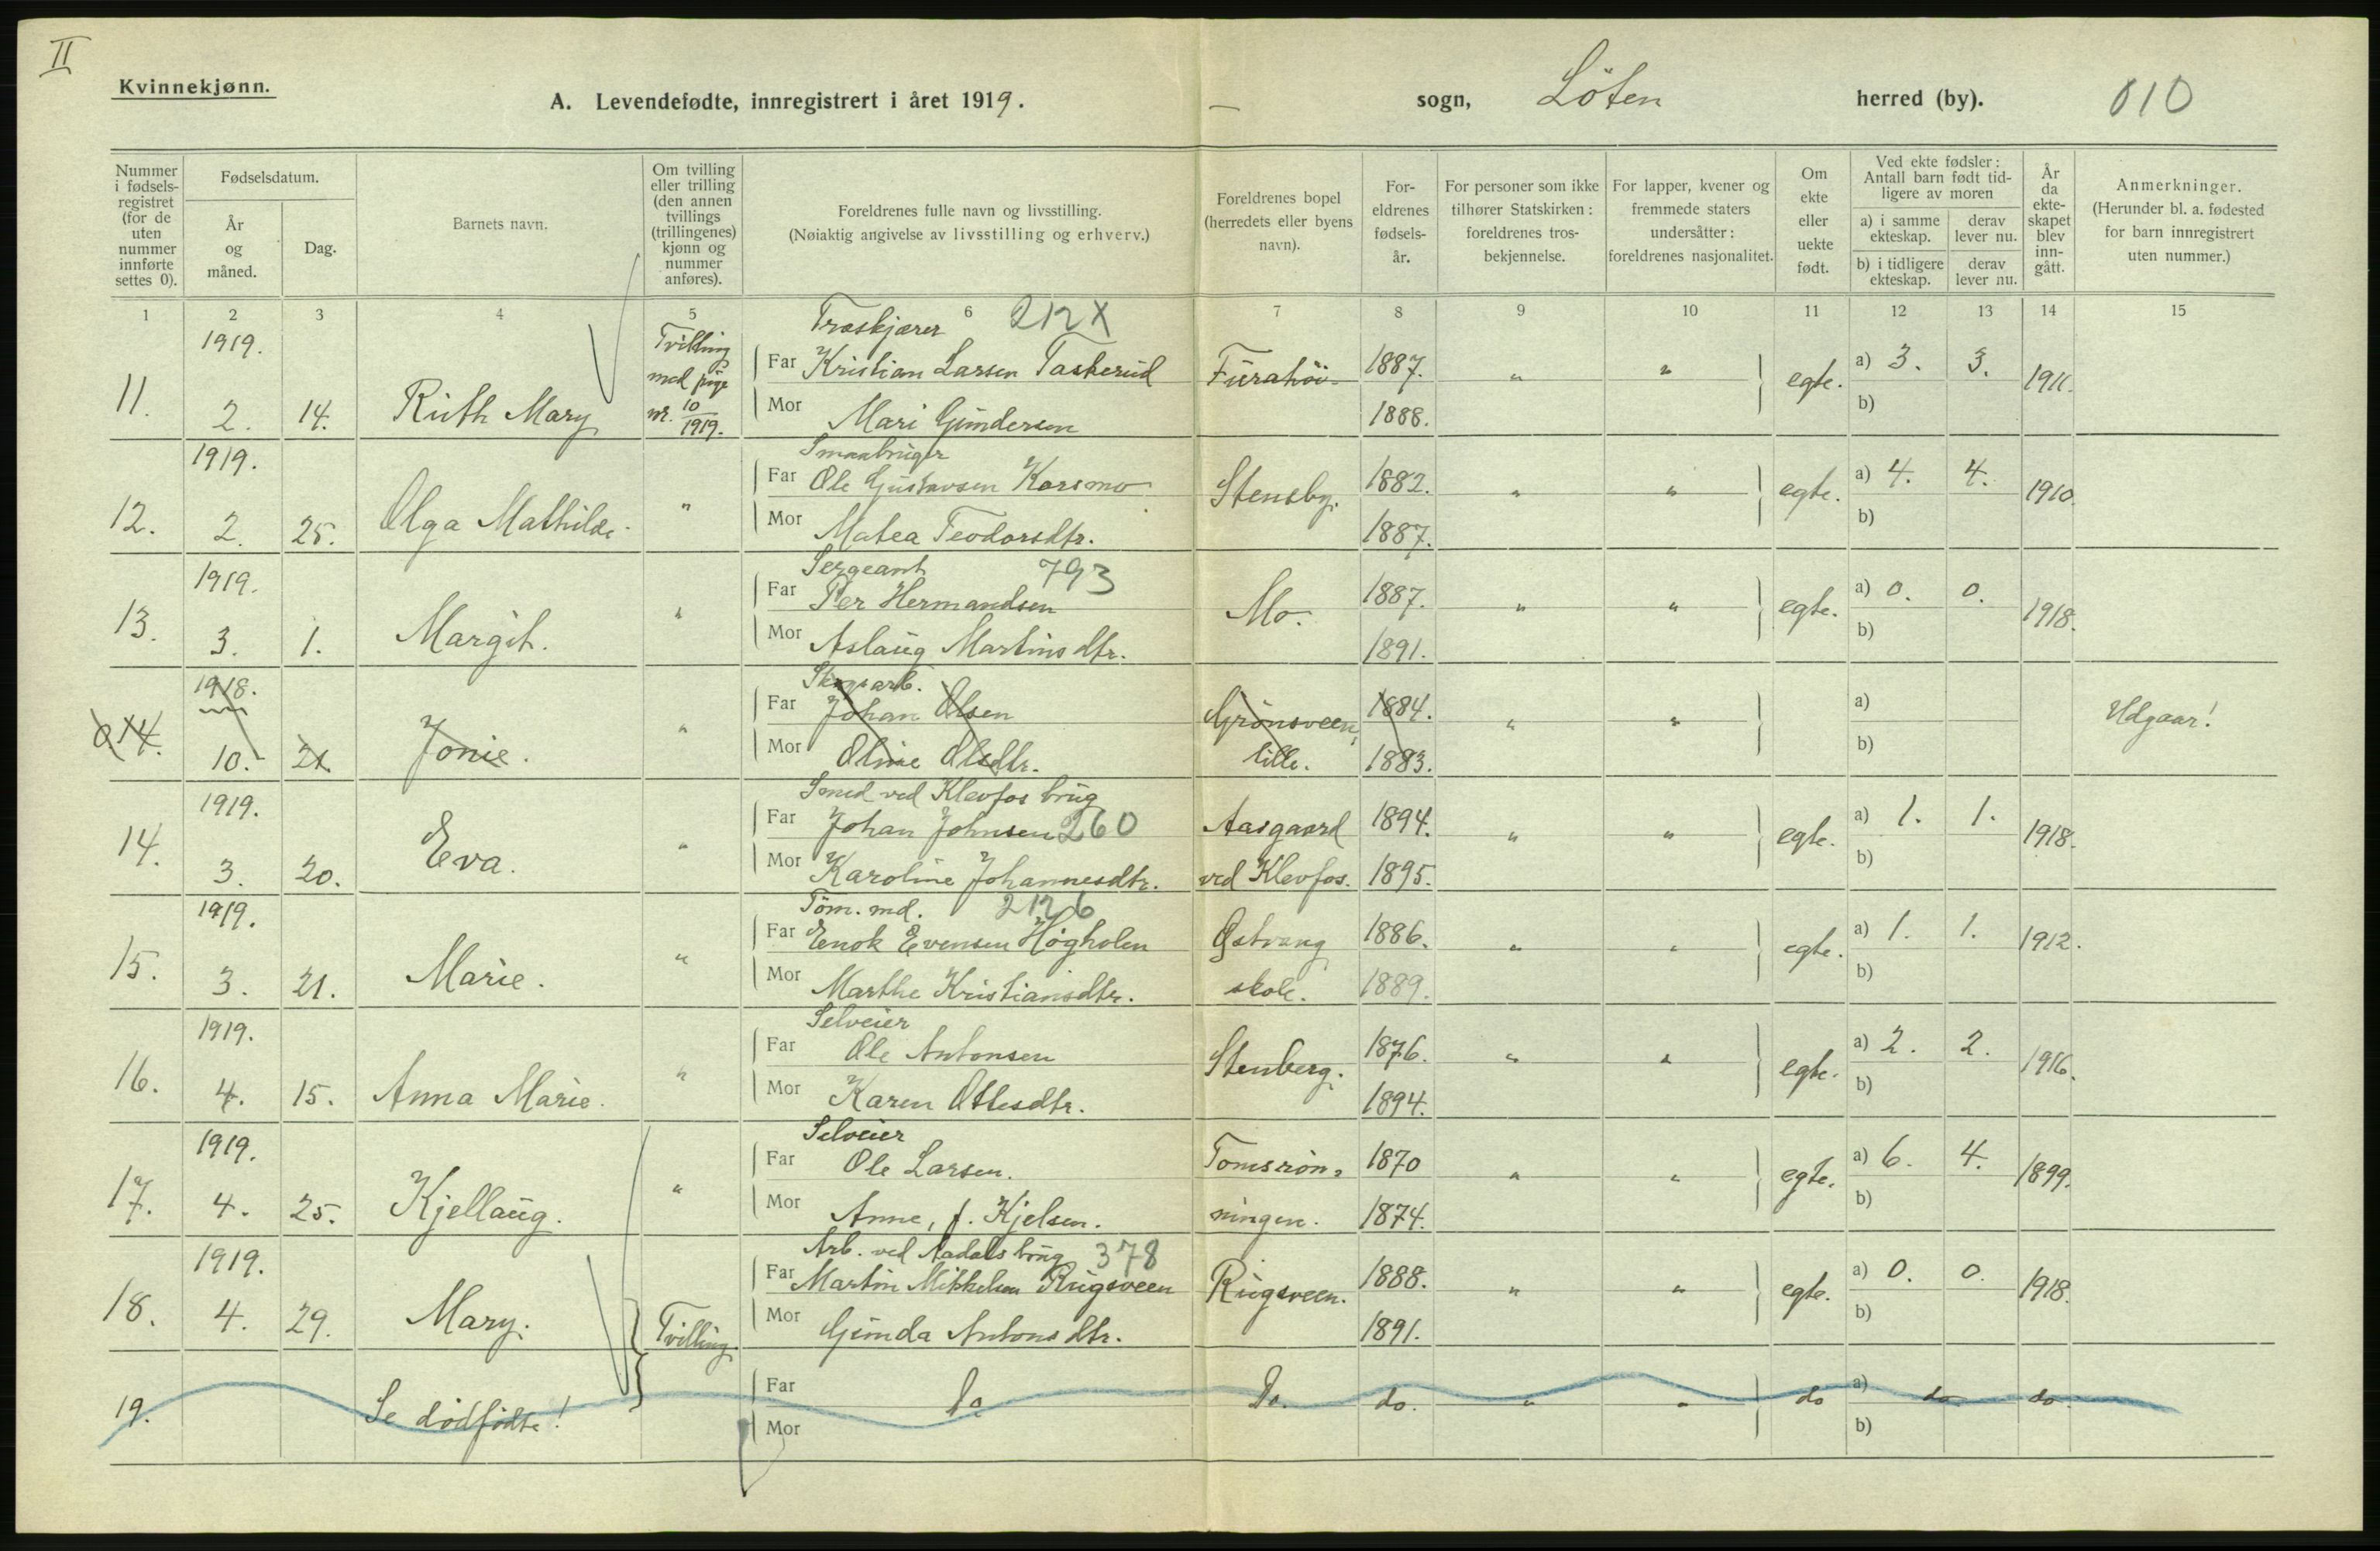 II
Kvinnekjønn.
A. Levendefødte, innregistrert i året 1919.
— sogn, Löten herred (by). 010
Nummer i fødselsregistret (for de uten nummer innførte settes 0).
Fødselsdatum.
År og måned.
Dag.
Barnets navn.
Om tvilling eller trilling (den annen tvillings (trillingenes) kjønn og nummer anføres).
Foreldrenes fulle navn og livsstilling.
(Nøiaktig angivelse av livsstilling og erhverv.)
Foreldrenes bopel (herredets eller byens navn).
Foreldrenes fødselsår.
For personer som ikke tilhører Statskirken: foreldrenes trosbekjennelse.
For lapper, kvener og fremmede staters undersåtter: foreldrenes nasjonalitet.
Om ekte eller uekte født.
Ved ekte fødsler: Antall barn født tidligere av moren
a) i samme ekteskap.
derav lever nu.
b) i tidligere ekteskap.
derav lever nu.
År da ekteskapet blev inngått.
Anmerkninger.
(Herunder bl. a. fødested for barn innregistrert uten nummer.)
1 2 3 4 5 6 7 8 9 10 11 12 13 14 15
Træskjærer 212X
11. 1919. 2. 14. Ruth Mary Tvilling med pige nr. 10/1919.
Far Kristian Larsen Taskerud Furahöi 1887. " " egte. a) 3. 3. 1911.
Mor Mari Gundersen 1888. b)
Smaabruger
12. 1919. 2. 25. Olga Mathilde. "
Far Ole Gustavsen Karsmo Stensby. 1882. " " egte. a) 4. 4. 1910.
Mor Matea Teodorsdtr. 1887. b)
Sergeant 793
13. 1919. 3. 1. Margit. "
Far Per Hermandsen Mo. 1887. " " egte. a) 0. 0. 1918.
Mor Aslaug Martinsdtr. 1891. b)
Skogsarb.
0 14. 1918. 10. 21 Jonie. "
Far Johan Olsen Grønsveen, 1884. " " a) Udgaar!
Mor Oline Olsdtr. lille. 1883. b)
Smed ved Klevfos brug
14. 1919. 3. 20. Eva. "
Far Johan Johnsen 260 Aasgaard 1894. " " egte. a) 1. 1. 1918.
Mor Karoline Johannesdtr. ved Klevfos. 1895. b)
Töm. md. 2126
15. 1919. 3. 21. Marie. "
Far Enok Evensen Høgholen Østvang 1886. " " egte. a) 1. 1. 1912.
Mor Marthe Kristiansdtr. skole. 1889. b)
Selveier
16. 1919. 4. 15. Anna Marie. "
Far Ole Antonsen Stenberg. 1876. " " egte. a) 2. 2. 1916.
Mor Karen Ottesdtr. 1894. b)
Selveier
17. 1919. 4. 25. Kjellaug. "
Far Ole Larsen. Tomsrön= 1870 " " egte. a) 6. 4. 1899.
Mor Anne, f. Kjelsen. ningen. 1874. b)
Arb. ved Aadals brug 378
18. 1919. 4. 29. Mary. Tvilling
Far Martin Mikkelsen Rugsveen Rugsveen. 1888. " " egte. a) 0. 0. 1918.
Mor Gunda Antonsdtr. 1891. b)
19. Se dødfødte!
Far Do Do. do. " " do a) do do.
Mor b)